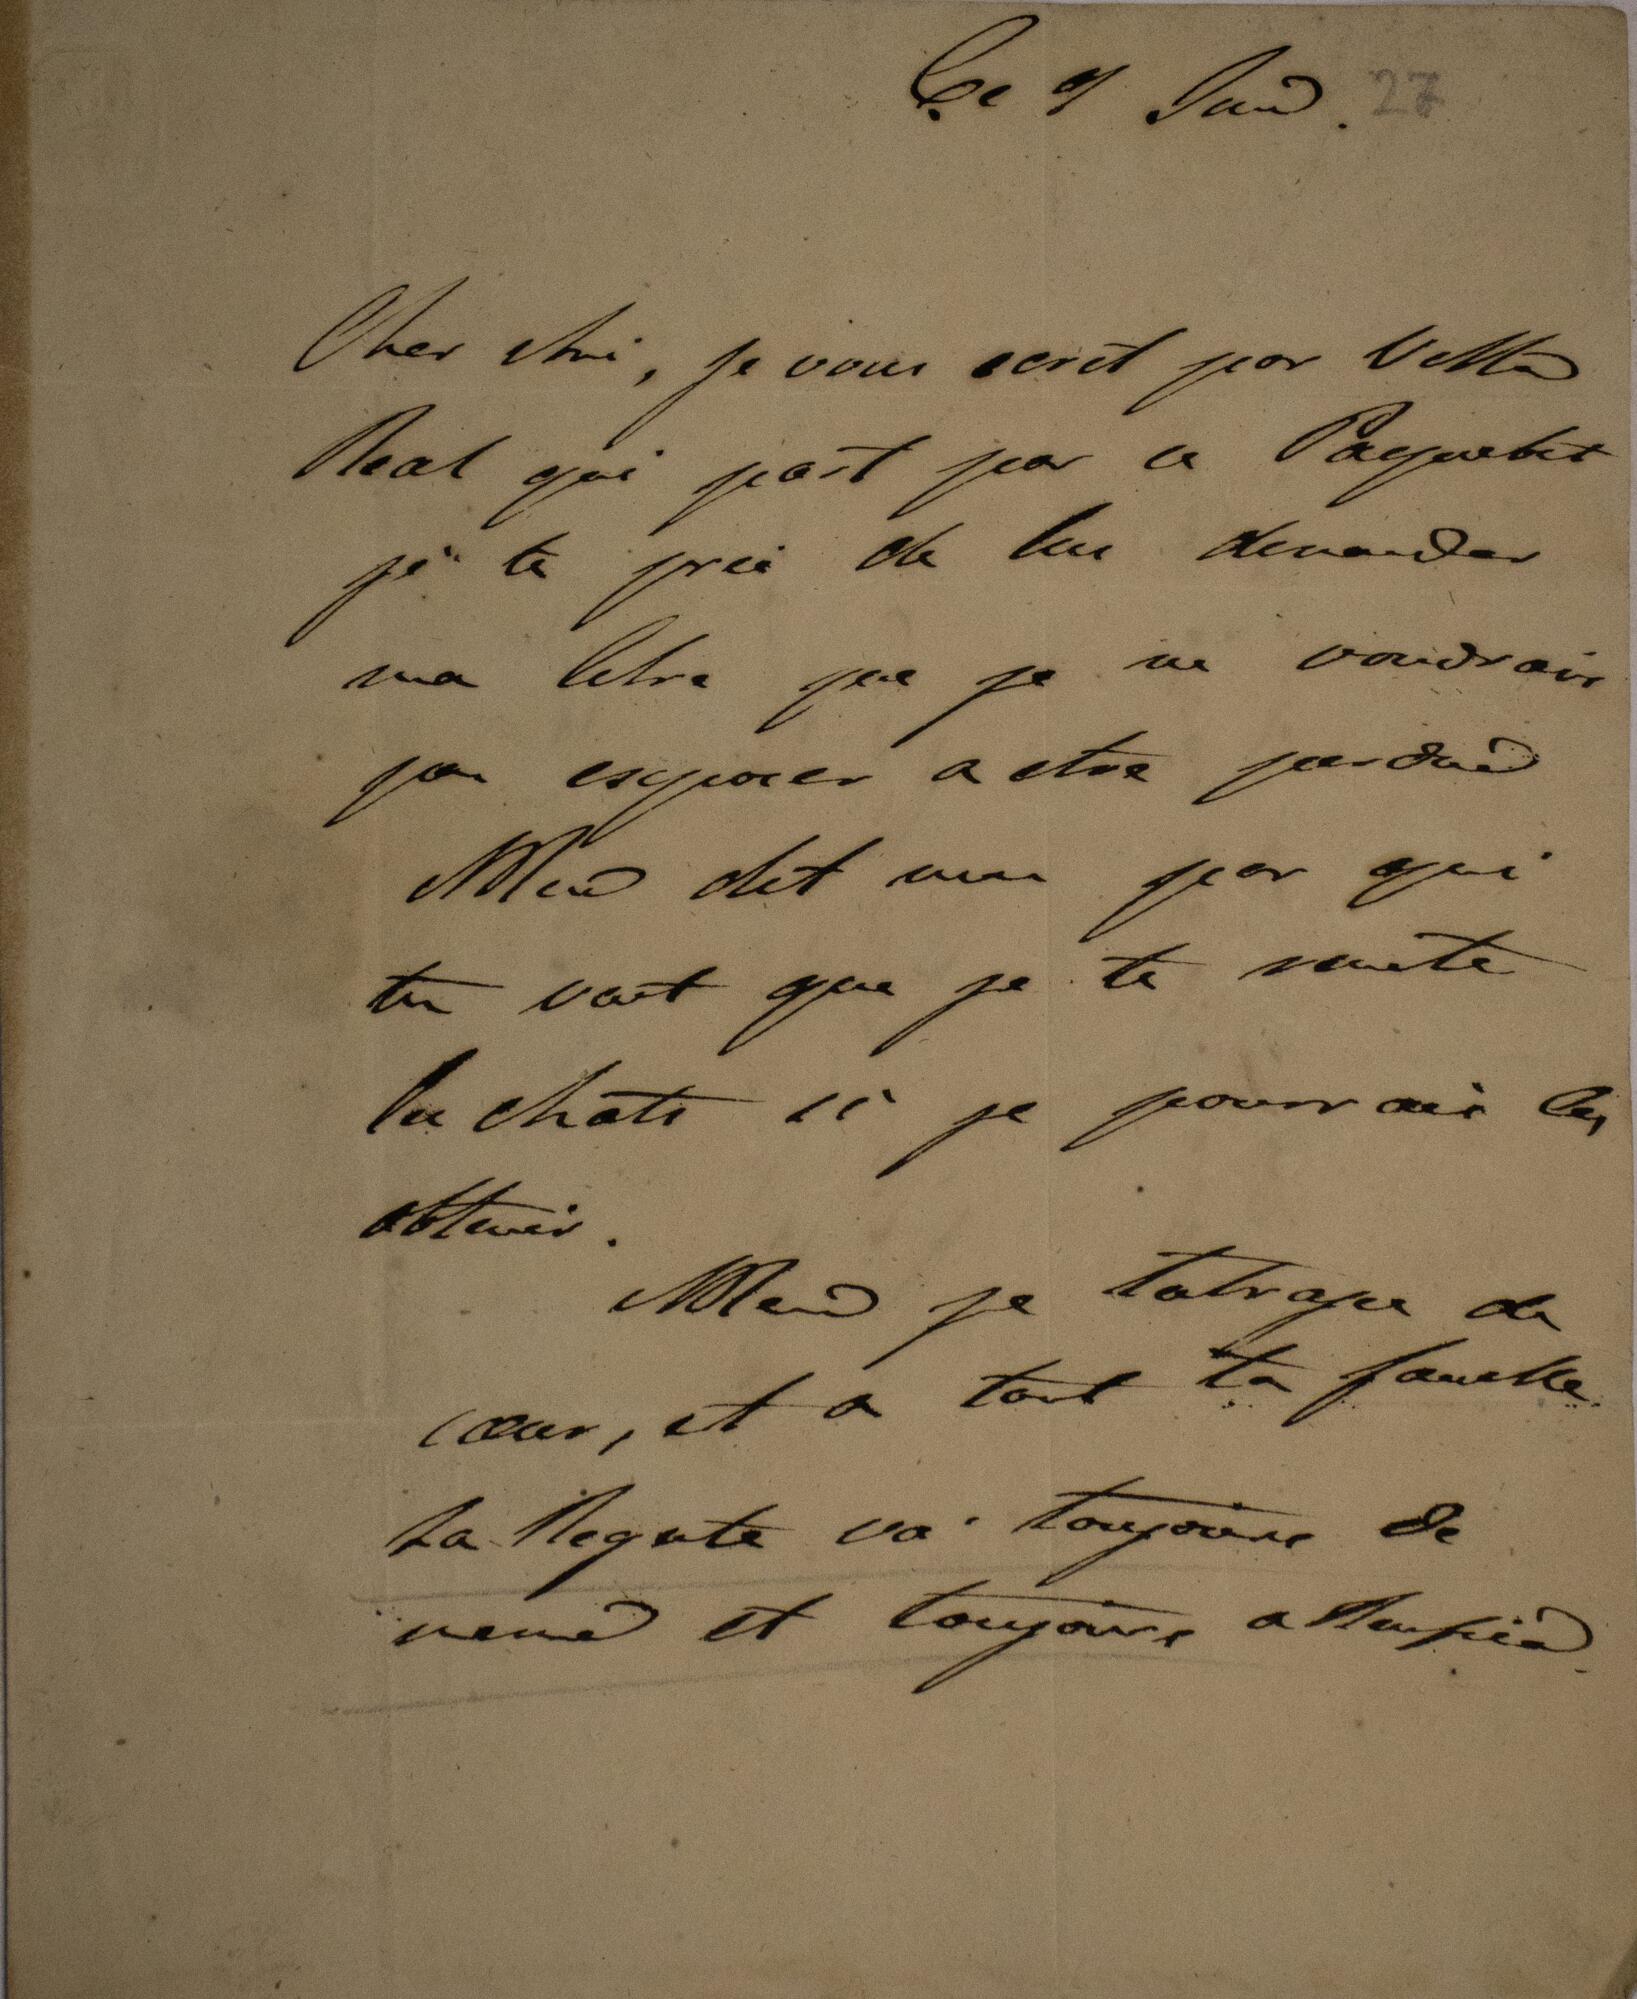 Ce 9 Juin. 27
Cher Ami, je vous ecrit par Villa
Real qui part par ce Paquebt
je te prie de lui demander
ma letre que je ne voudrais
pas exposer a etre perdue
Alleu dit moi par qui
tu vout que je te
les chats si je pourrais les
obtenir.
Alleu je de
cœur, et a tout ta famille.
La Regate va toujours de
meme et toujours